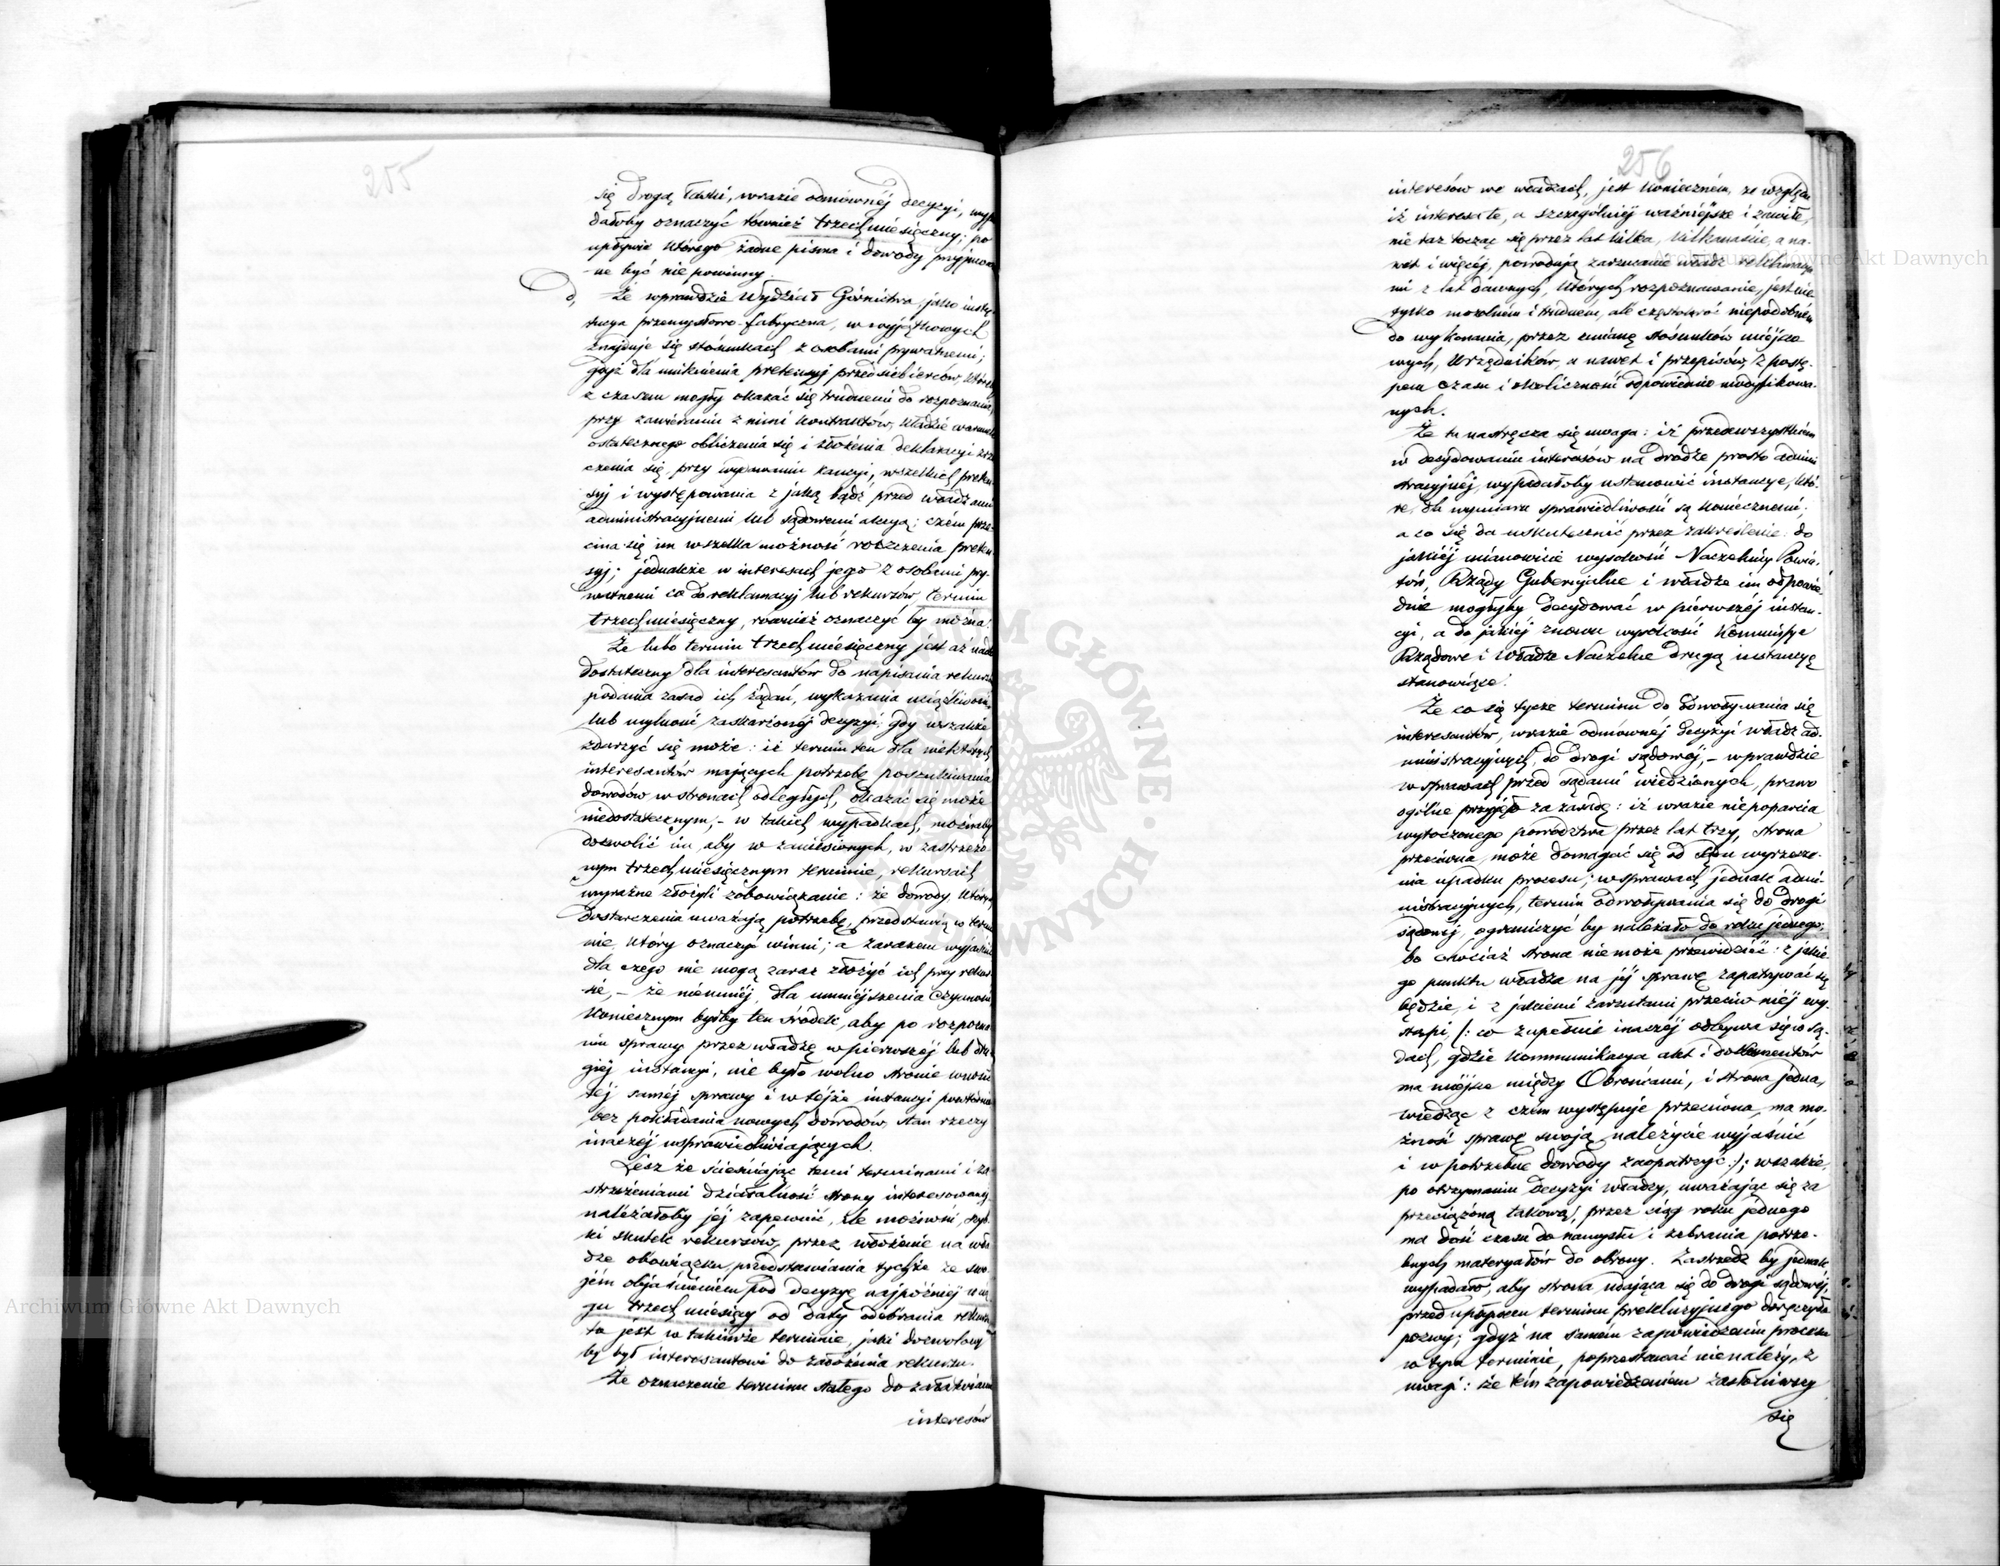 255
się drogą łaski, wrazie odmównéj decyzyi, wypa
dałoby oznaczyć również trzechmiesięczny; po
upływie którego żadne pisma i dowody przyjmowa
-ne być nie powinny.
d, Że wprawdzie Wydział Górnictwa, jako insty
tucya przemysłowo-fabryczna, w wyjątkowych
znajduje się stósunkach z osobami prywatnemi;
gdyż dla uniknienia pretensyj przedsiebierców, które
z czasem mogły okazać się trudnemi do rozpoznania,
przy zawieraniu z nimi kontraktów, kładzie warunek
ostatecznego obliczenia się i złożenia deklaracyi zrze
czenia się, przy wydawaniu kaucyi, wszelkich preten
syj i występowania z jaką bądź przed władzami
administracyjnemi lub sądowemi akcyą; czém prze
cina się im wszelka możność roszczenia preten
syj; jednakże w interesach jego z osobami pry-
watnemi co do reklamacyj lub rekursów, termin
trzechmiesięczny, również oznaczyć by można.
Że lubo termin trzechmiesięczny jest aż nadto
dostateczny dla interesantów do napisania rekursu
podania zasad ich żądań, wykazania uciążliwości,
lub mylności zaskarżonéj decyzyi; gdy wszakże
zdarzyć się może: iż termin ten dla niektórych
interesantów mających potrzebę poszukiwania
dowodów w stronach odległych, okazać się może
niedostatecznym, – w takich wypadkach, możnaby
dozwolić im, aby w zaniesionych, w zastrzeżo
nym trzechmiesięcznym terminie, rekursach
wyraźne złożyli zobowiązanie: że dowody, których
dostarczenia uważają potrzebę, przedstawią w termi
nie, który oznaczyć winni; a zarazem wyjaśnią
dla czego nie mogą zaraz złożyć ich przy rekur
sie, – że niemniéj, dla umniejszenia czynności
koniecznym byłby ten środek, aby po rozpozna
niu sprawy przez władzę w pierwszéj lub dru
giéj instancyi, nie było wolno stronie wnosić
téj saméj sprawy i w téjże instancyi powtórnie
bez pokładania nowych dowodów, stan rzeczy
inaczéj usprawiedliwiających.
Lecz że ścieśniając temi terminami i za
strzeżeniami działalność strony interesowanéj
należałoby jéj zapewnić, ile możności, szyb
ki skutek rekursów, przez włożenie na wła
dze obowiązku, przedstawiania tychże ze swo
jém objaśnieniem pod decyzyę najpóźniéj w cią
gu trzech miesięcy od daty odebrania rekursu
to jest w takimże terminie, jaki dozwolony
by był interesantowi do założenia rekursu.
Że oznaczenie terminu stałego do załatwiania
interesów
256
interesów we władzach, jest koniecznem, ze względu
iż interesa te, a szczególniéj ważniejsze i zawiłe,
nie raz tocząc się przez lat kilka, kilkanaście, a na-
wet i więcéj, powodują zarzucanie władz reklamacya
mi z lat dawnych, których rozpoznawanie, jest nie
tylko mozolném i trudném, ale częstokroć niepodobném
do wykonania, przez zmianę stósunków miejsco
wych, Urzędników, a nawet i przepisów, z postę-
pem czasu i okoliczności odpowiednio modyfikowa-
nych.
Że tu nastręcza się uwaga: iż przedewszystkiém
w decydowaniu interesów na drodze prosto admini
stracyjnéj, wypadałoby ustanowić instancye, któ-
re, dla wymiaru sprawiedliwości są koniecznemi;
a co się da uskutecznić przez zakreślenie: do
jakiéj mianowicie wysokości Naczelnicy Powia-
tów, Rządy Gubernjalne i władze im odpowie-
dnie mogłyby decydować w pierwszéj instan-
cyi, a do jakiéj znowu wysokości Kommissye
Rządowe i Władze Naczelne drugą instancyę
stanowiące.
Że co się tycze terminu do odwoływania się
interesantów, wrazie odmównéj decyzyi władz ad-
ministracyjnych, do drogi sądowéj, – wprawdzie
w sprawach przed sądami wiedzionych, prawo
ogólne przyjęło za zasadę: iż wrazie niepoparcia
wytoczonego powództwa przez lat trzy, strona
przeciwna, może domagać się od Sądu wyrzecze-
nia upadku procesu; w sprawach jednak admi-
nistracyjnych, termin odwoływania się do drogi
sądowéj, ograniczyć by należało do roku jednego;
bo chociaż strona nie może przewidzieć: z jakie
go punktu władza na jéj sprawę zapatrywać się
będzie, i z jakiemi zarzutami przeciw niéj wy-
stąpi, /: co zupełnie inaczéj odbywa się w Są-
dach, gdzie kommunikacya akt i dokumentów
ma miejsce między Obrońcami, i strona jedna,
wiedząc z czém występuje przeciwna, ma mo-
żność sprawę swoją należycie wyjaśnić
i w potrzebne dowody zaopatrzyć :/; wszakże,
po otrzymaniu decyzyi władzy, uważając się za
przeciążoną takową, przez ciąg roku jednego
ma dość czasu do namysłu i zebrania potrze-
bnych materyałów do obrony. Zastrzedz by jednak
wypadało, aby strona udająca się do drogi sądowéj,
przed upływem terminu prekluzyjnego doręczyła
pozwy; gdyż na samém zapowiedzeniu procesu
w tym terminie, poprzestawać nie należy, z
uwagi: że tém zapowiedzeniem zasłoniwszy
się
Archiwum Główne Akt Dawnych
Archiwum Główne Akt Dawnych